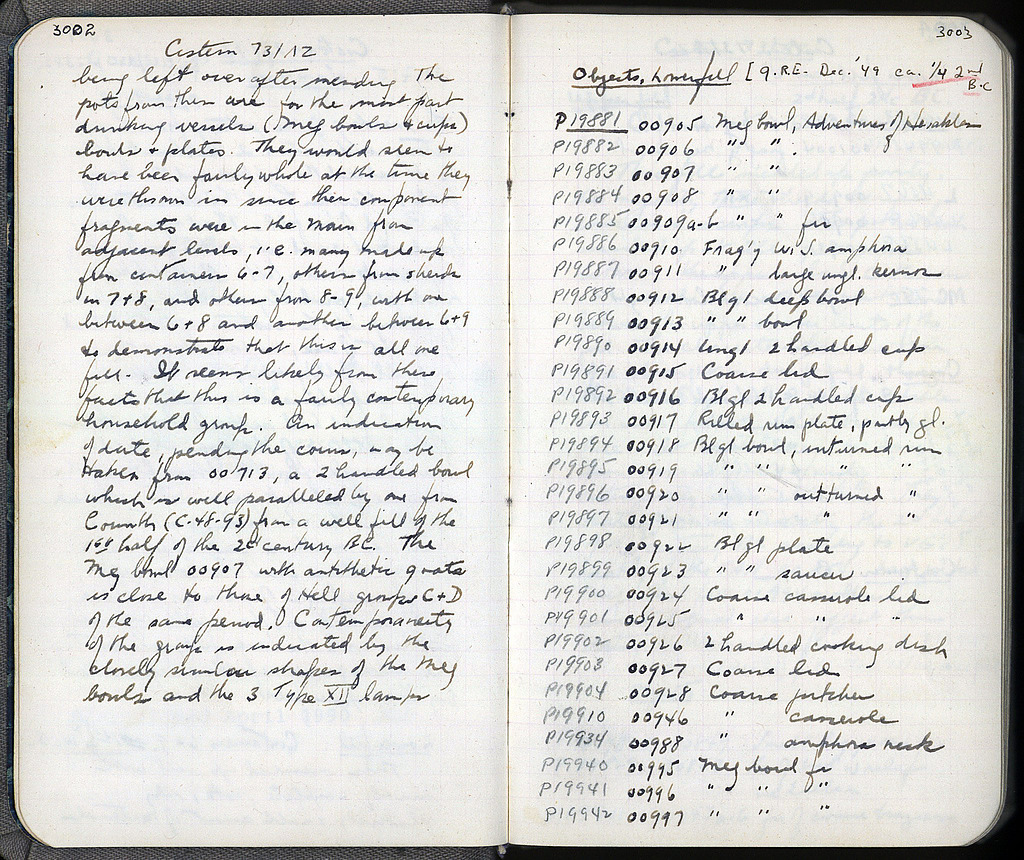 3002
Cistern 73/12
being left over after mending. The
pots from them are for the most part
drinking vessels (Meg bowls + cups)
bowls + plates. They would seem to
have been fairly whole at the time they
were thrown in since their component
fragments were in the main from
adjacent levels, i.e. many made up
from containers 6-7, others from sherds
in 7+8, and others from 8-9, with one
between 6+8 and another between 6+9
to demonstrate that this is all one
fill. It seems likely from these
facts that this is a fairly contemporary
household group. An indication
of date, pending the coins, may be
taken from 00713, a 2 handled bowl
which is well paralleled by one from
Corinth (C-48-93) from a well fill of the
1st half of the 2d century BC. The
Meg bowl 00907 with antithetic goats
is close to those of Hell groups C+D
of the same period. Contemporaneity
of the group is indicated by the
closely similar shapes of the Meg
bowls and the 3 Type XII lamps
3003
Objects, Lower fill [G.R.E. Dec. '49 ca. 1/4 2nd
B.C
P19881 00905 Meg bowl, Adventures of Herakles
P19882 00906 " "
P19883 00907 " "
P19884 00908 " "
P19885 00909a-b " " fr
P19886 00910 Frag'y W.S. amphora
P19887 00911 " large ungl. kernos
P19888 00912 Bl gl deep bowl
P19889 00913 " " bowl
P19890 00914 Ungl 2 handled cup
P19891 00915 Coarse lid
P19892 00916 Bl gl 2 handled cup
P19893 00917 Rilled rim plate, partly gl.
P19894 00918 Bl gl bowl, inturned rim
P19895 00919 " " " "
P19896 00920 " " outturned "
P19897 00921 " " " "
P19898 00922 Bl gl plate
P19899 00923 " " saucer
P19900 00924 Coarse casserole lid
P19901 00925 " " "
P19902 00926 2 handled cooking dish
P19903 00927 Coarse lid
P19904 00928 Coarse pitcher
P19910 00946 " casserole
P19934 00988 " amphora neck
P19940 00995 Meg bowl fr
P19941 00996 " " "
P19942 00997 " " "